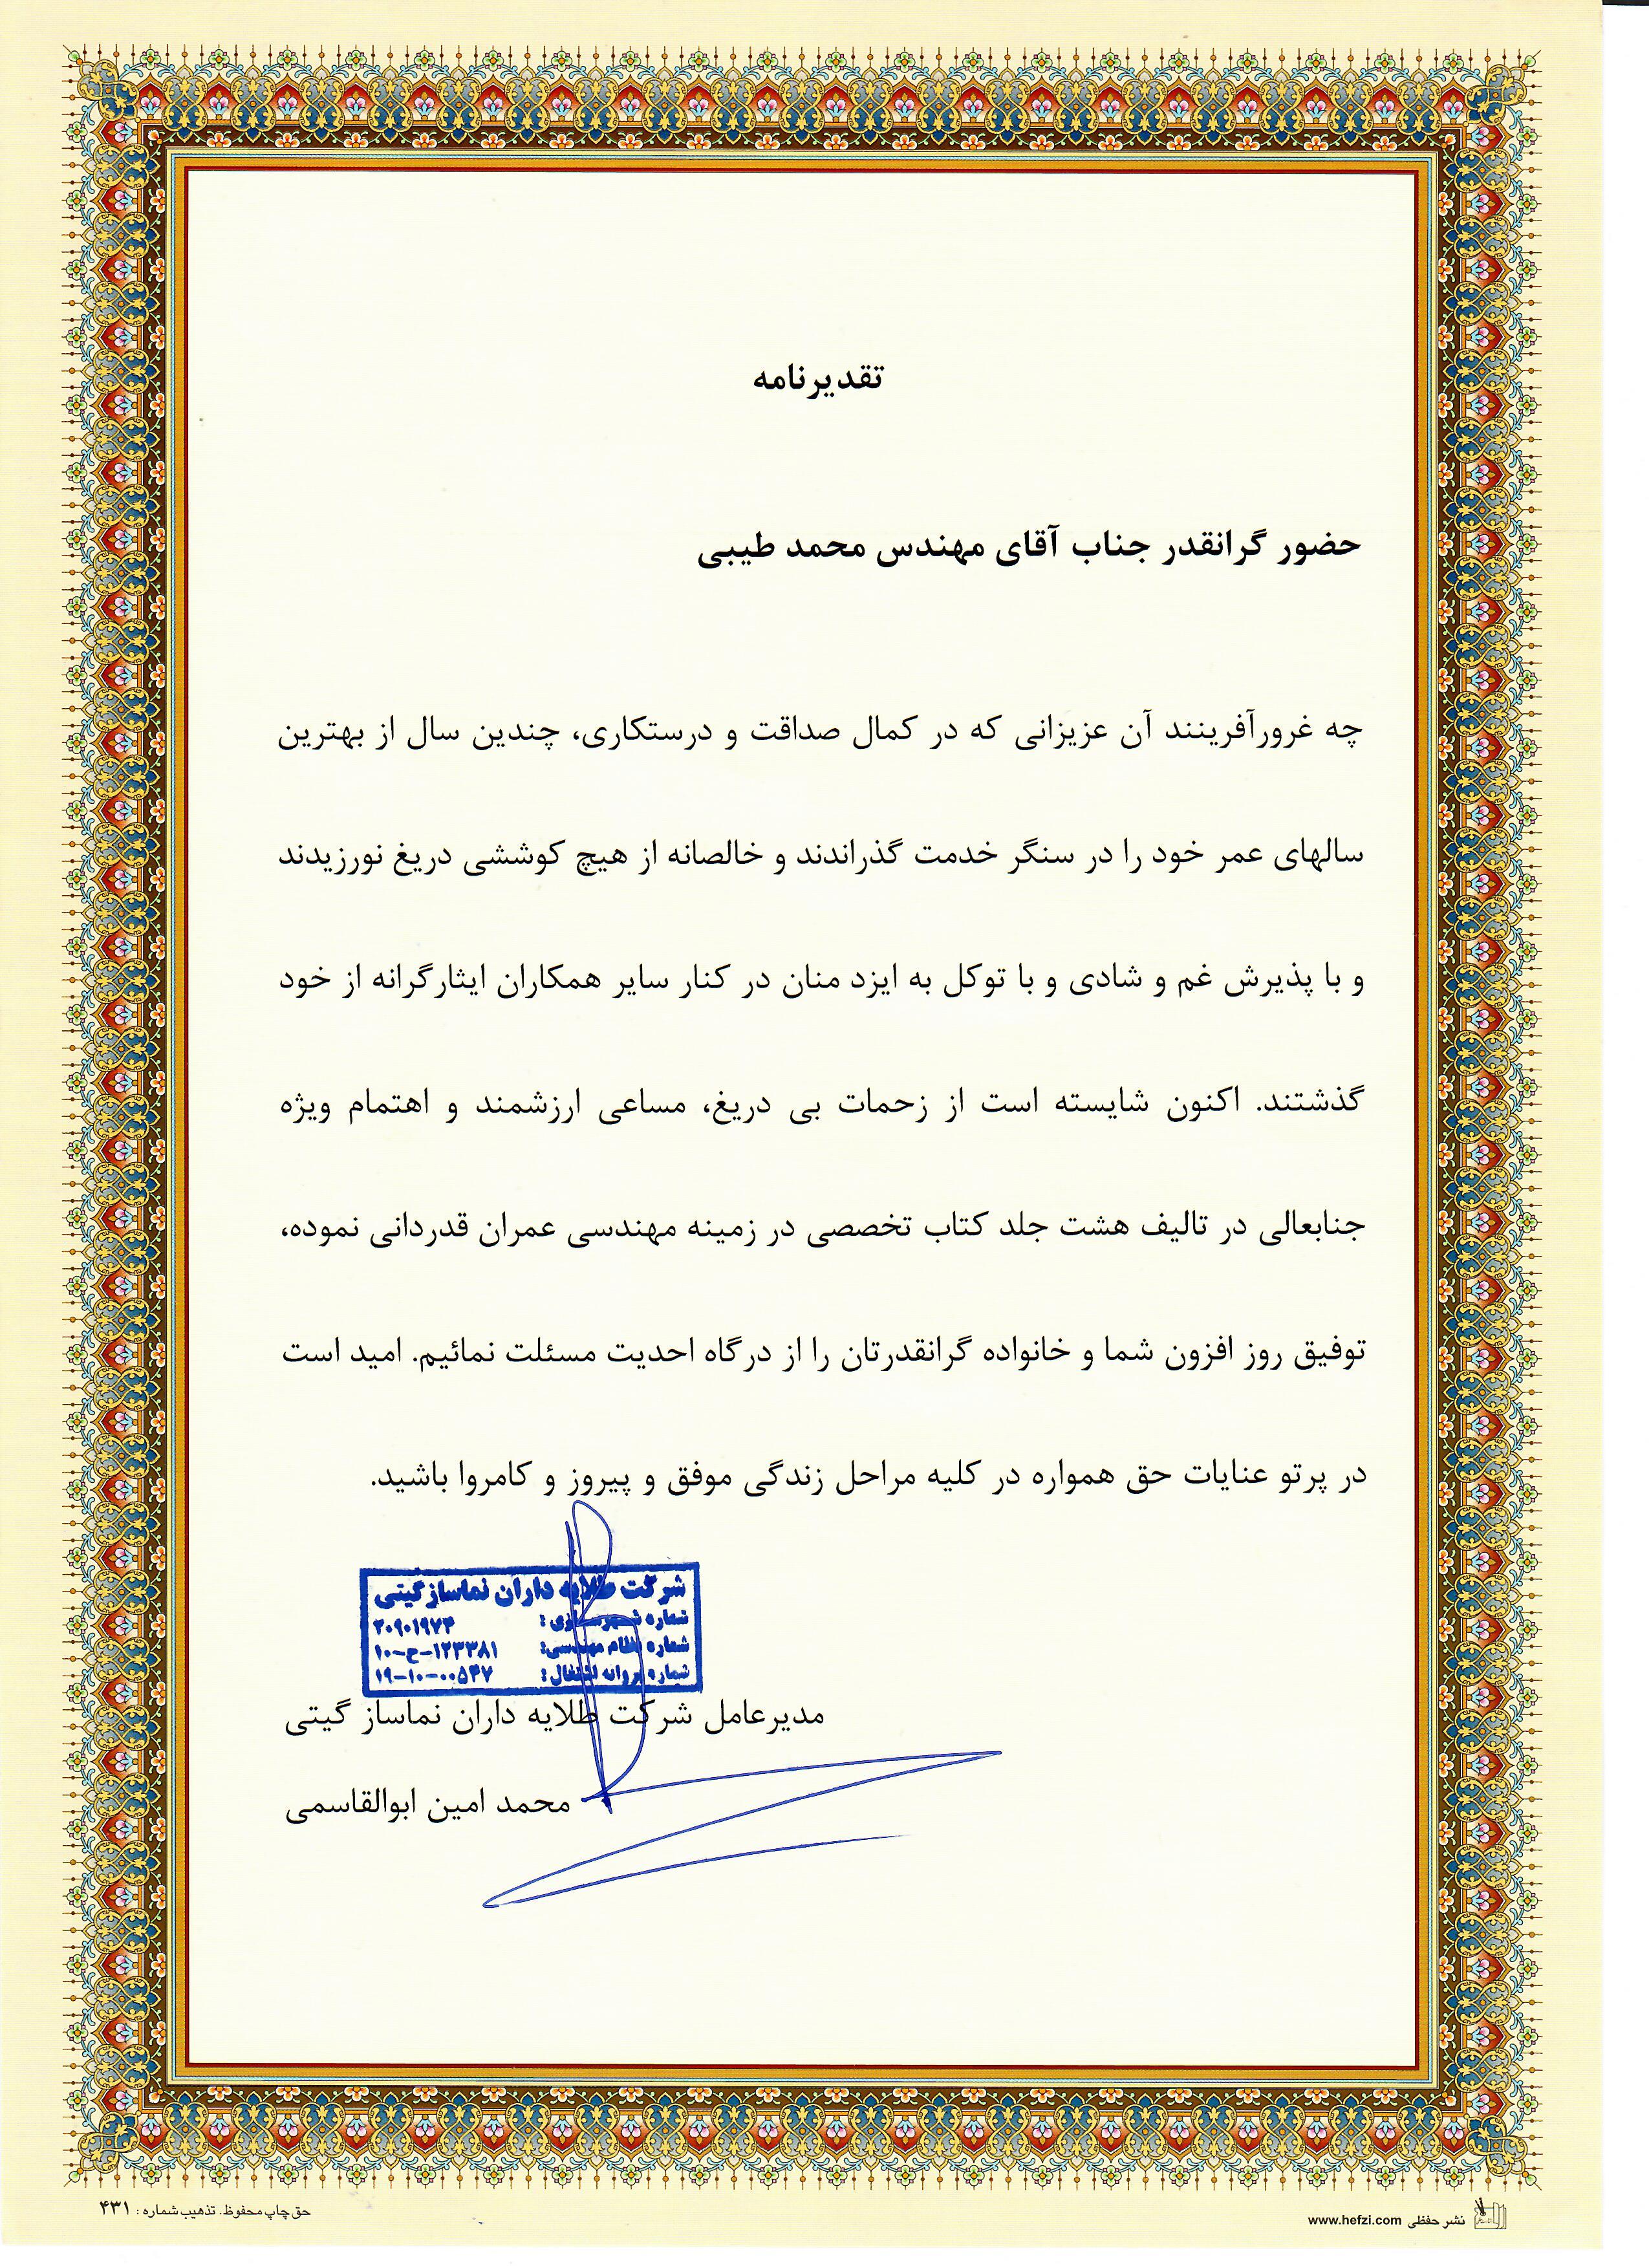 تقدیرنامه
حضور گرانقدر جناب آقای مهندس محمد طیبی
چه غرورآفرینند آن عزیزانی که در کمال صداقت و درستکاری، چندین سال از بهترین
سالهای عمر خود را در سنگر خدمت گذراندند و خالصانه از هیچ کوششی دریغ نورزیدند
و با پذیرش غم و شادی و با توکل به ایزد منان در کنار سایر همکاران ایثارگرانه از خود
گذشتند. اکنون شایسته است از زحمات بی دریغ، مساعی ارزشمند و اهتمام ویژه
جنابعالی در تالیف هشت جلد کتاب تخصصی در زمینه مهندسی عمران قدردانی نموده،
توفیق روز افزون شما و خانواده گرانقدرتان را از درگاه احدیت مسئلت نمائیم. امید است
در پرتو عنایات حق همواره در کلیه مراحل زندگی موفق و پیروز و کامروا باشید.
شرکت طلایه داران نماساز گیتی
شماره شهرسازی: ۳۰۹۰۱۹۷۴
شماره نظام مهندسی: ۱۰-ح-۱۲۳۳۸۱
شماره پروانه اشتغال: ۱۹-۱۰-۰۰۵۴۷
مدیرعامل شرکت طلایه داران نماساز گیتی
محمد امین ابوالقاسمی
نشر حفظی www.hefzi.com
حق چاپ محفوظ. تذهیب شماره : ۴۳۱